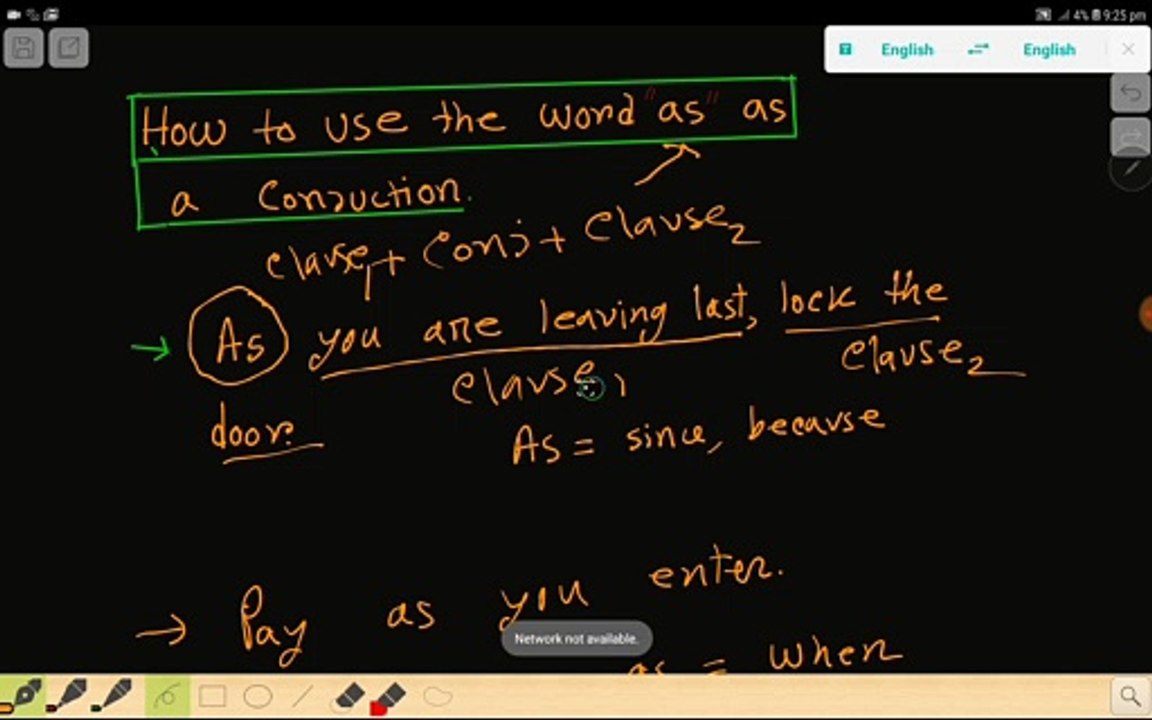 4% 9:25 pm
English English
How to use the word "as" as
a Conjuction.
Clause1 + Conj + Clause2
→ As you are leaving last, lock the
Clause1 Clause2
door.
As = since, because
→ Pay as you enter.
Network not available.
as = when